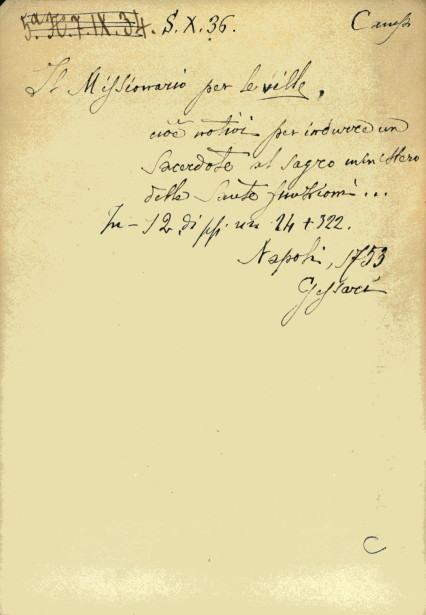 5ª H.7.IX.34. S.X.36.
Il Missionario per le ville,
cioè motivi per indurre un
Sacerdote al sagro ministero
delle Sante funzioni...
In-12 di pp. nn. 24+322.
Napoli, 1753
Gessari
C